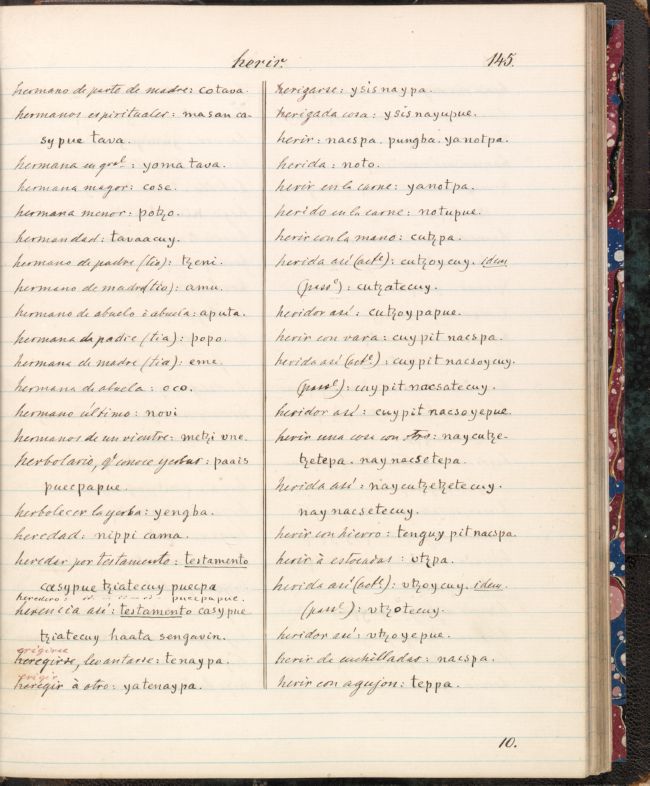 herir.
145.
hermano de parte de madre: cotava
hermanos espirituales: masan ca-
sypue tava.
hermana en gral: yoma tava.
hermana mayor: cose.
hermana menor: potzo.
hermandad: tavaacuy.
hermano de padre (tio): tzeni.
hermano de madre (tio): amu.
hermano de abuelo ò abuela: aputa.
hermana de padre (tia): popo.
hermana de madre (tia): eme.
hermana de abuela: oco.
hermano último: novi
hermanos de un vientre: metzi vne.
herbolario, qe conoce yerbas: paais
puecpapue.
herbolecer la yerba: yengba.
heredad: nippi cama.
heredar por testamento: testamento
casypue tziatecuy puecpa
heredero: -"- -"- -"- puecpapue.
herencia asi: testamento casypue
tziatecuy haata sengavin.
erigirse
heregirse, levantarse: tenaypa.
erigir
heregir à otro: yatenaypa.
herigarse: ysisnaypa.
herigada cosa: ysisnayupue.
herir: nacspa. pungba. yanotpa.
herida: noto.
herir en la carne: yanotpa.
herido en la carne: notupue.
herir con la mano: cutzpa.
herida asi (acte): cutzoycuy. idem
(passe): cutzatecuy.
heridor asi: cutzoypapue.
herir con vara: cuypit nacspa.
herida asi (acte): cuypit nacsoycuy.
(passe): cuypit nacsatecuy.
heridor asi: cuypit nacsoyepue.
herir una cosa con otra: naycutze-
tzetepa. nay nacsetepa.
herida asi: naycutzetzetecuy.
naynacsetecuy.
herir con hierro: tenguy pit nacspa.
herir à estocadas: vtzpa.
herida asi (acte): vtzoycuy. idem.
(passe): vtzotecuy.
heridor asi: vtzoyepue.
herir de cuchilladas: nacspa.
herir con agujon: teppa.
10.